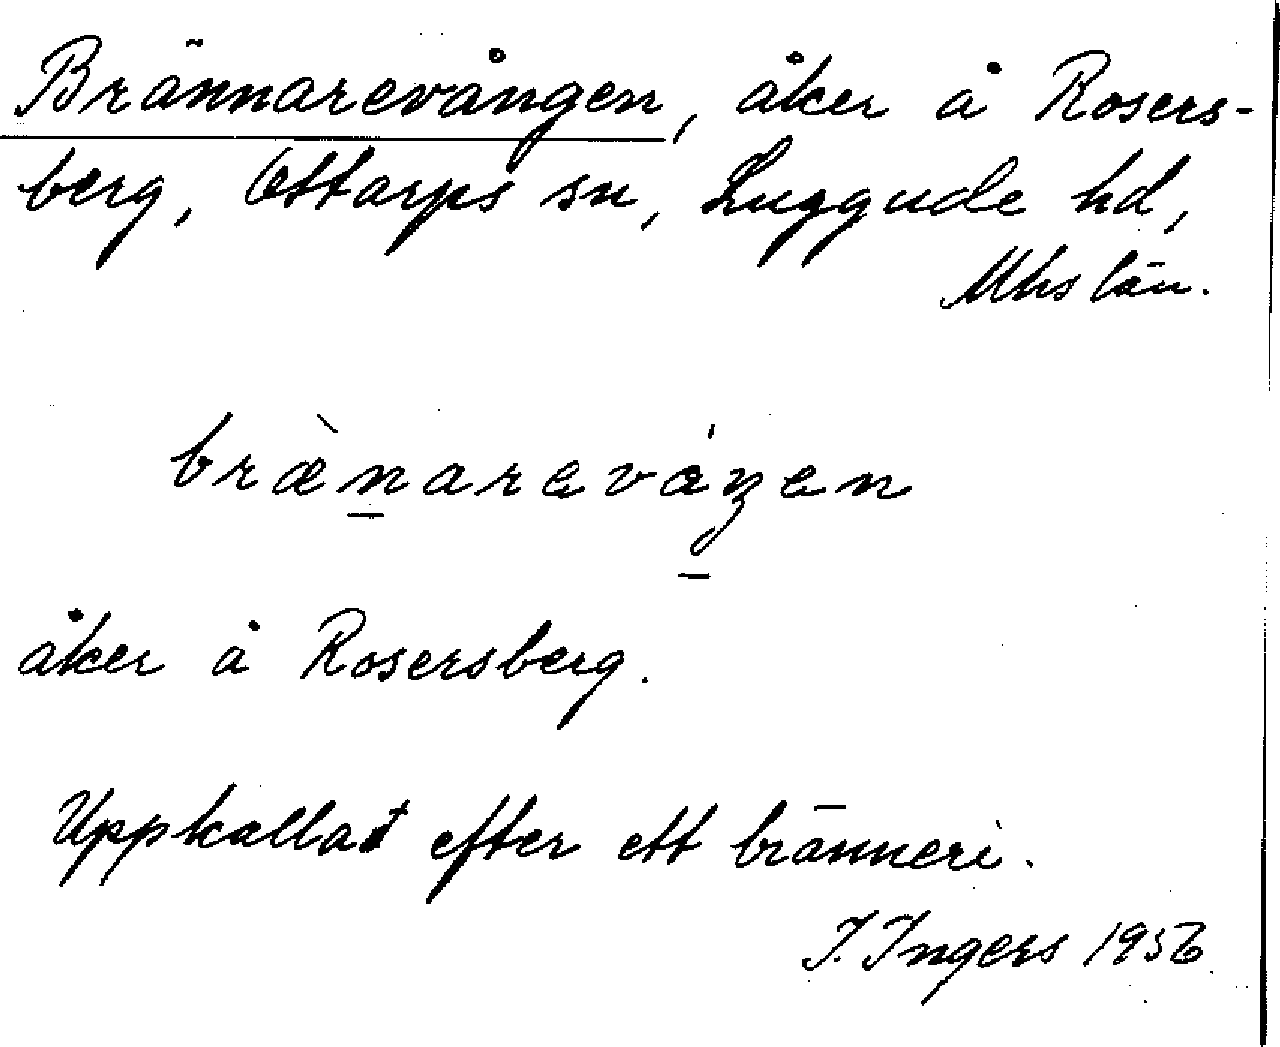 Brännarevången, åker å Rosers-
berg, Ottarps sn, Luggude hd,
Mhs län.
bræ̀narevåŋen
åker å Rosersberg.
Uppkallat efter ett bränneri.
I. Ingers 1956